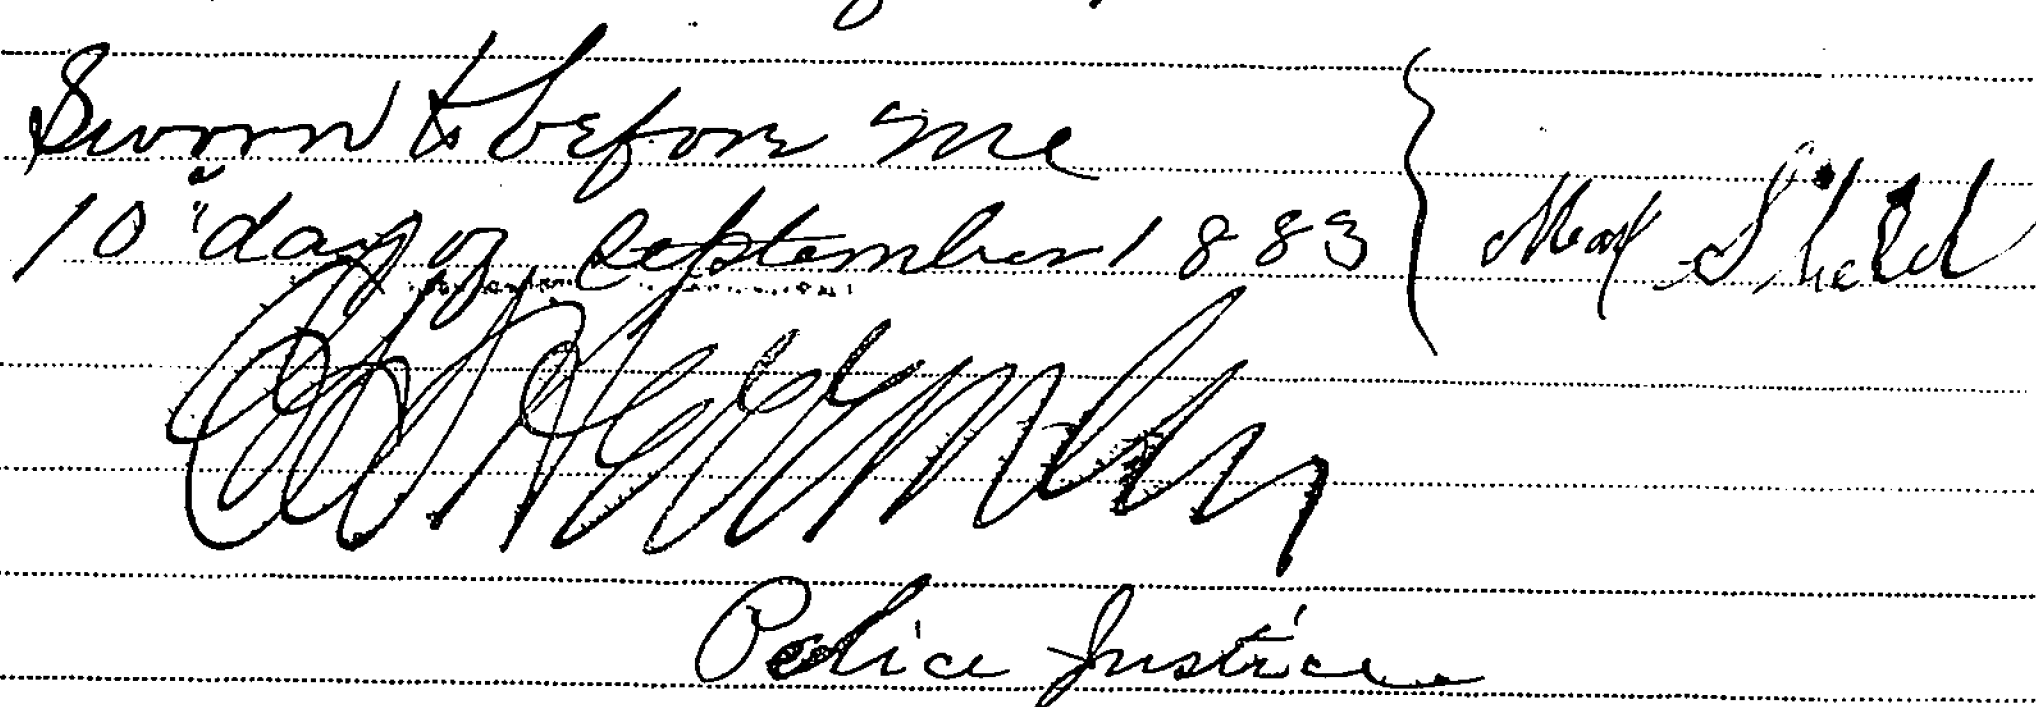 Sworn to before me
10" day of September 1883 } Max Shield
Police Justice